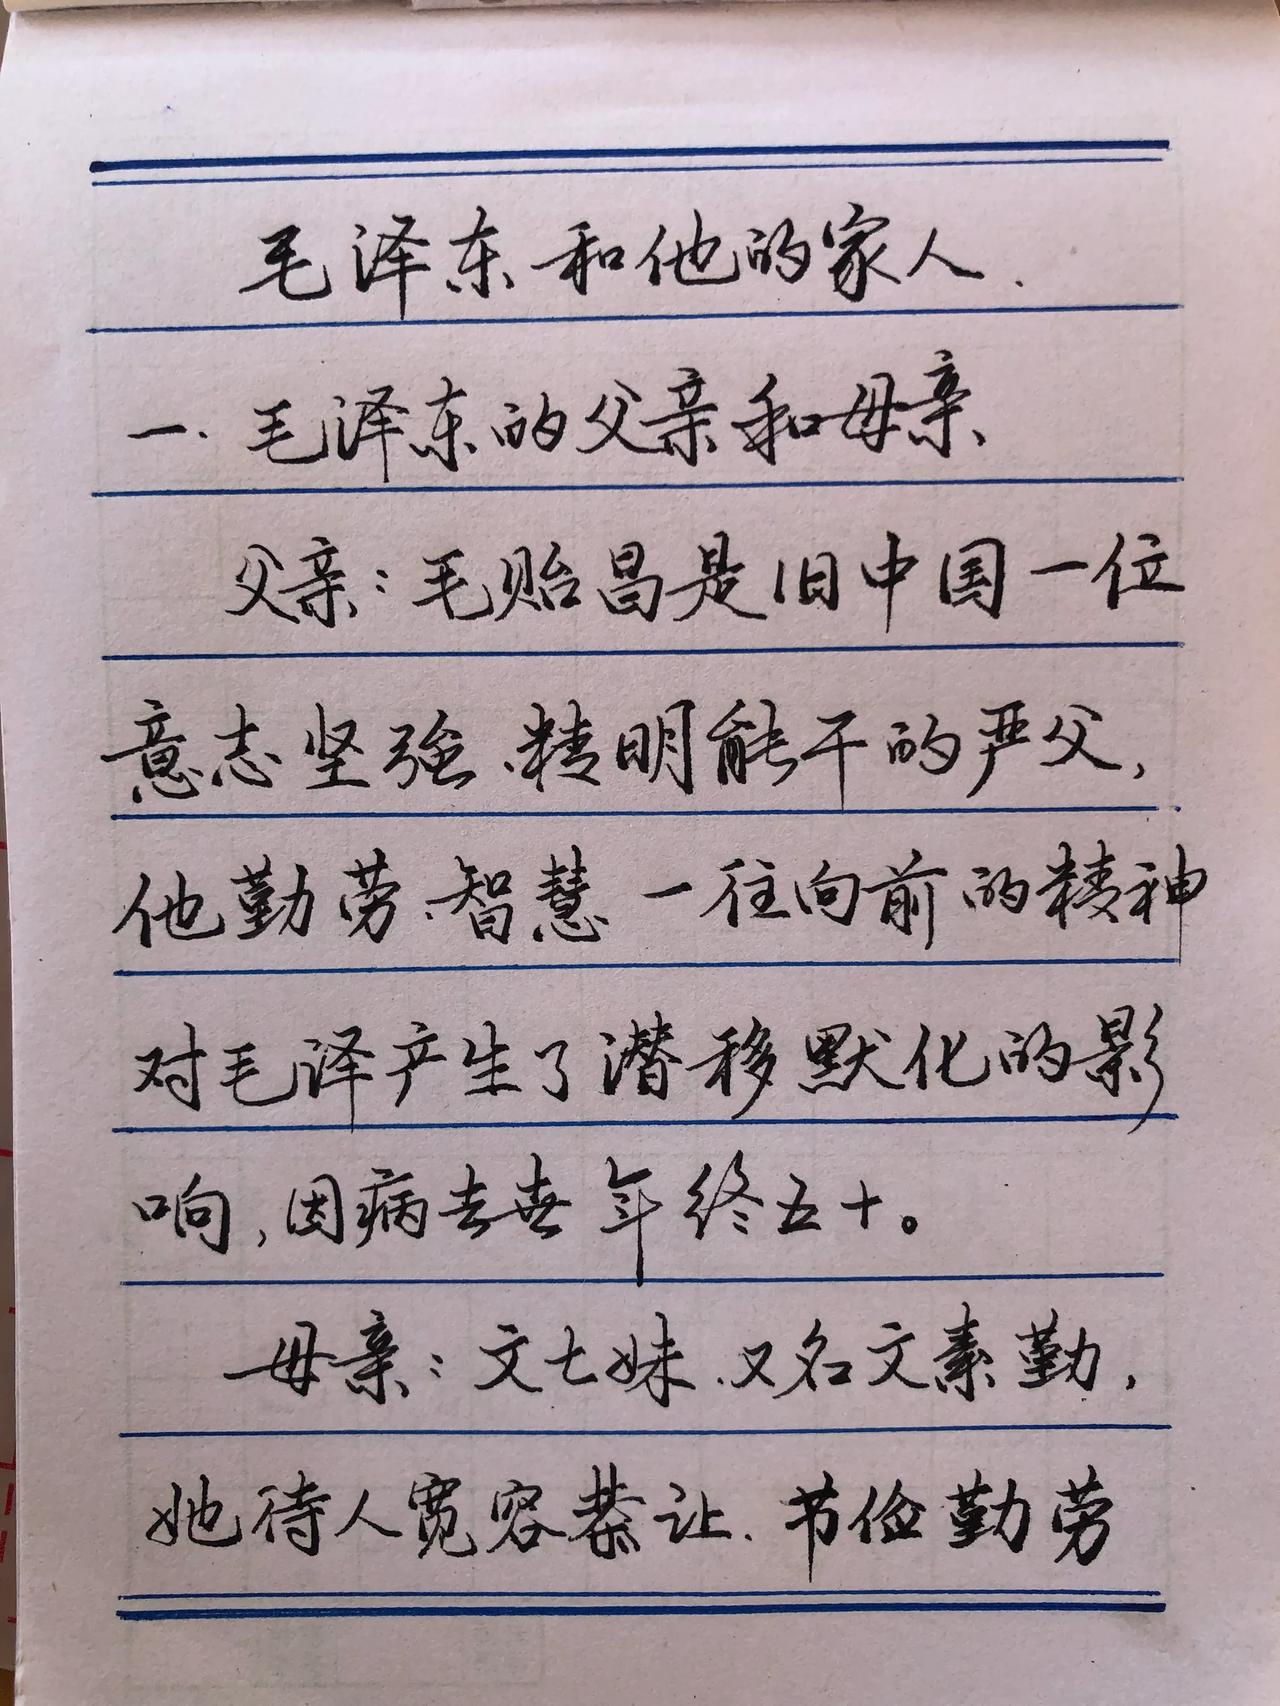 毛泽东和他的家人.
一.毛泽东的父亲和母亲、
父亲：毛贻昌是旧中国一位
意志坚强、精明能干的严父，
他勤劳、智慧、一往向前的精神
对毛泽产生了潜移默化的影
响，因病去世年终五十。
母亲：文七妹、又名文素勤，
她待人宽容恭让、节俭勤劳